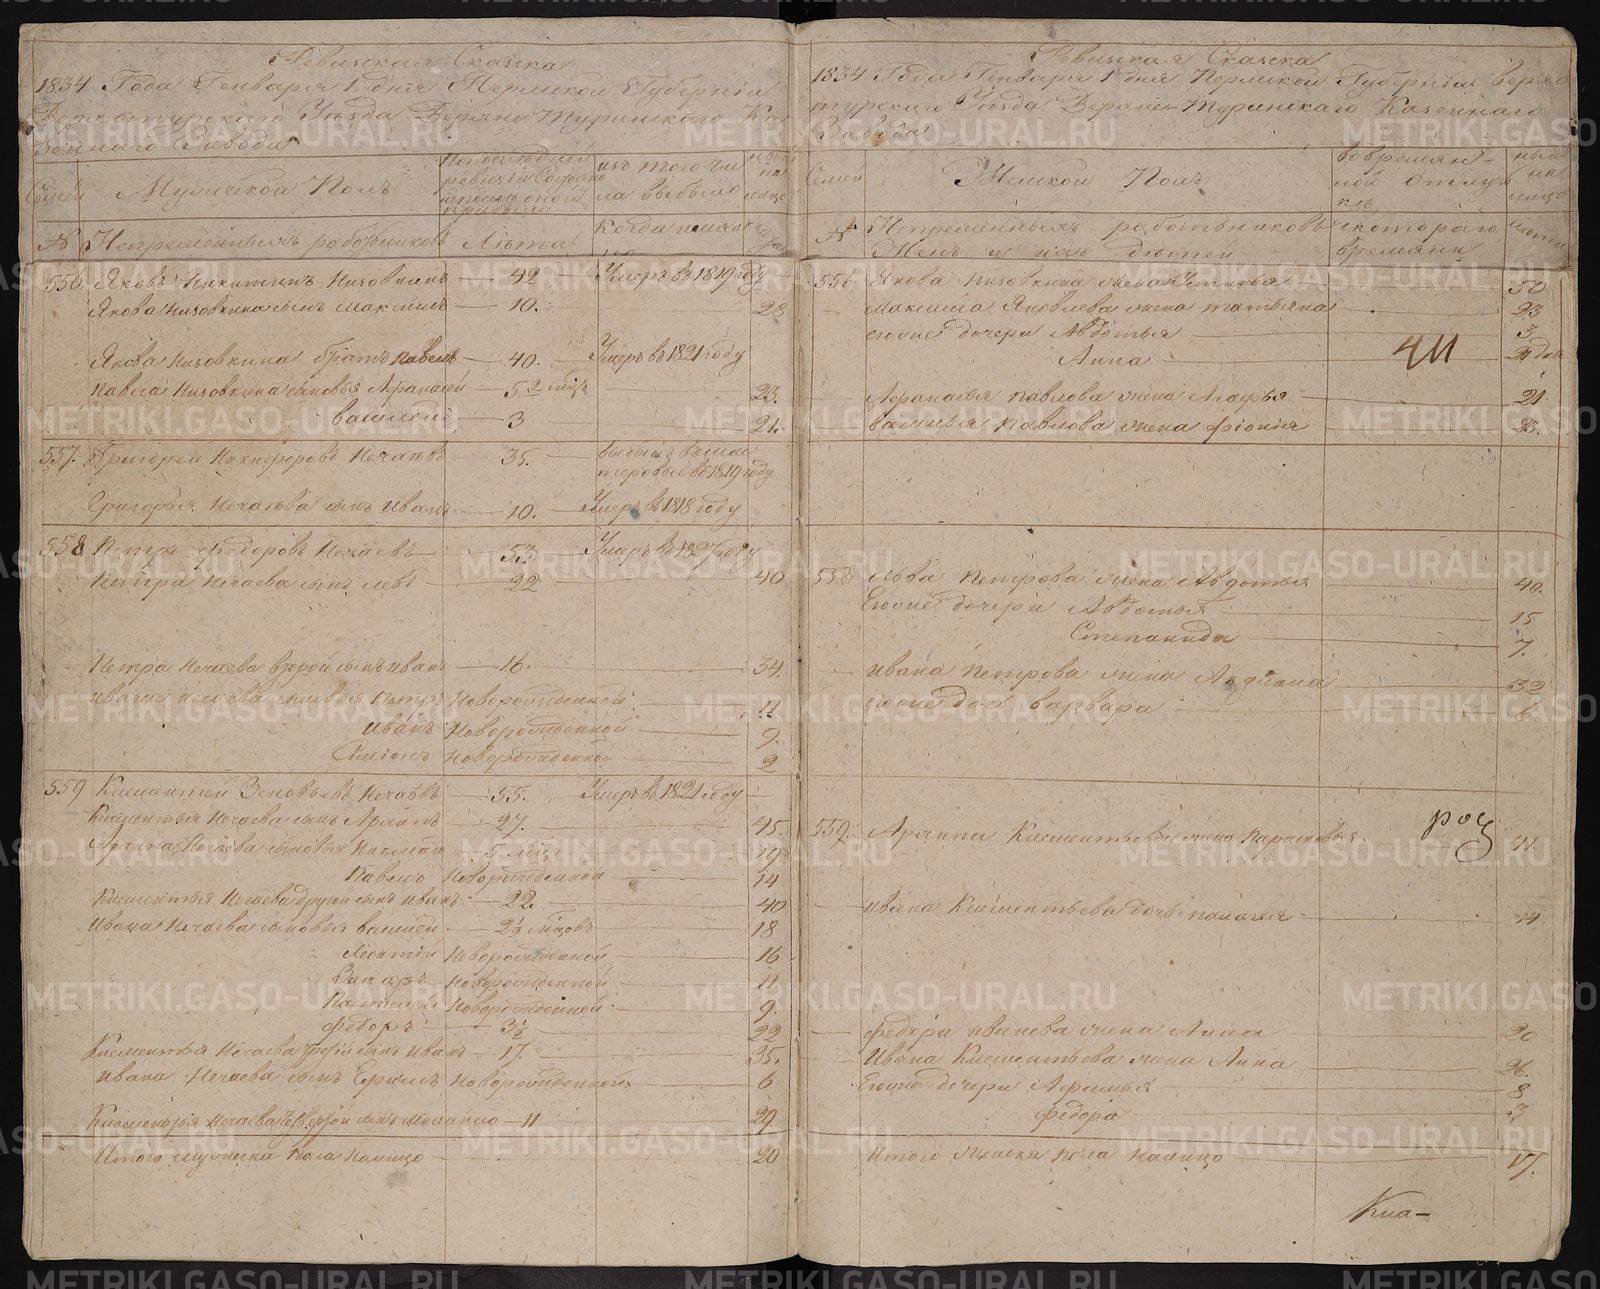 Ревизская Сказка
1834 Года Генваря 1 дня Пермской Губернiи
Верхотурскаго Уѣзда Верхне Туринскаго Ка
зеннаго Завода
Семей
Мужеской Полъ
По последней
ревизiи состояло
изъ того чи
сла выбыло
нынѣ
на
лицо
№
Непременныхъ работниковъ
Лѣта
Когда именно
лѣта
556 Яковъ Никитинъ Низовкинъ 42 Умеръ въ 1819 году
Якова Низовкина сынъ Максимъ 10. 28
Якова Низовкина братъ Павелъ 40. Умеръ въ 1821 году
Павла Низовкина сыновья Афанасей 5 2 мѣц 23.
Василей 3 21.
557. Григорей Никифоровъ Нечаевъ 35. выбылъ въ мас
теровые въ 1819 году
Григорья Нечаева сынъ Иванъ 10. Умеръ въ 1818 году
558 Петръ Федоровъ Нечаевъ 53. Умеръ въ 1827 году
Петра Нечаева сынъ Левъ 22 40
Петра Нечаева второй сынъ Иванъ 16. 34.
Ивана Нечаева сыновья Петръ Новорожденной 11
Иванъ Новорожденной 9.
Симионъ Новорожденной 2
559 Клементей Зеновьевъ Нечаевъ 55. Умеръ въ 1821 году
Клементья Нечаева сынъ Архипъ 27. 45.
Архипа Нечаева сыновья Николай 5 мѣц 19
Павелъ Новорожденной 14
Клементья Нечаева другой сынъ Иванъ 22. 40
Ивана Нечаева сыновья Василей 2½ мѣцовъ 18
Леонтiй Новорожденной 16
Захаръ Новорожденной 11
Новорожденной 9.
Федоръ 3½ 22
Клементья Нечаева третiй сынъ Иванъ 17. 35.
Ивана Нечаева сынъ Новорожденной 6
Клементья Нечаева четвертой сынъ Михайло 11 29
Итого мужеска пола налицо 20
Ревизская Сказка
1834 Года Генваря 1 дня Пермской Губернiи Верхо
турскаго Уѣзда Верхне-Туринскаго Казеннаго
Завода
Семей
Женской Полъ
во времян-
ной отлуч
кѣ
нынѣ
на
лицо
№
Непременныхъ работниковъ
Жены и ихъ дѣтей
с котораго
времяни
лѣта
556 Якова Низовкина жена Устинья 50
Максима Яковлева жена Татьяна 23
его же дочери Авдотья 3
Анна
411
Афанасья Павлова жена Агафья 21
Василья Павлова жена Фiонiя 23.
558 Льва Петрова жена Авдотья 40.
Его же дочери Авдотья 15
Степанида 7.
Ивана Петрова жена 32
его же дочь Варвара 6
559. Архипа Клементьева жена Парасковья 41.
Ивана Клементьева дочь Палагея 14
Федора Иванова жена Анна 20
Ивана Клементьева жена Анна 26.
Его же дочери Афимья 8
Федора 3
Итого женска пола налицо 17.
METRIKI.GASO-URAL.RU